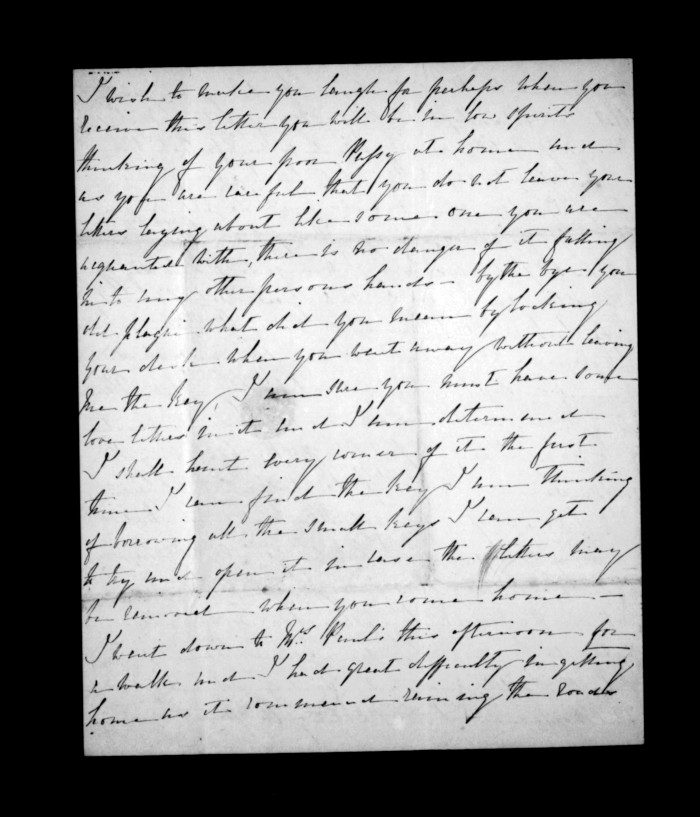 I wish to make you laugh for perhaps when you
receive this letter you will be in low spirits
thinking of your poor Pussy at home and
as you are careful that you do not leave your
letters laying about like some one you are
acquanted with, there is no danger of it falling
in to any other persons hands - by the bye you
old plague what did you mean by locking
your desk when you went away without leaving
me the key, I am sure you must have some
love letters in it and I am determined
I shall hunt every corner of it the first
time I can find the key I am thinking
of borrowing all the small keys I can get
to try and open it in case the letters may
be removed when you come home -
I went down to Mrs this afternoon for
a walk and I had great difficulty in getting
home as it commenced raining the roads